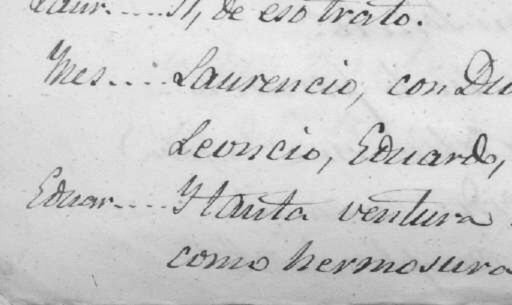 Laur.... Si, de eso trato.
Ynes.... Laurencio, con Du
Leoncio, Eduardo,
Eduar.... Y tanta ventura
como hermosura